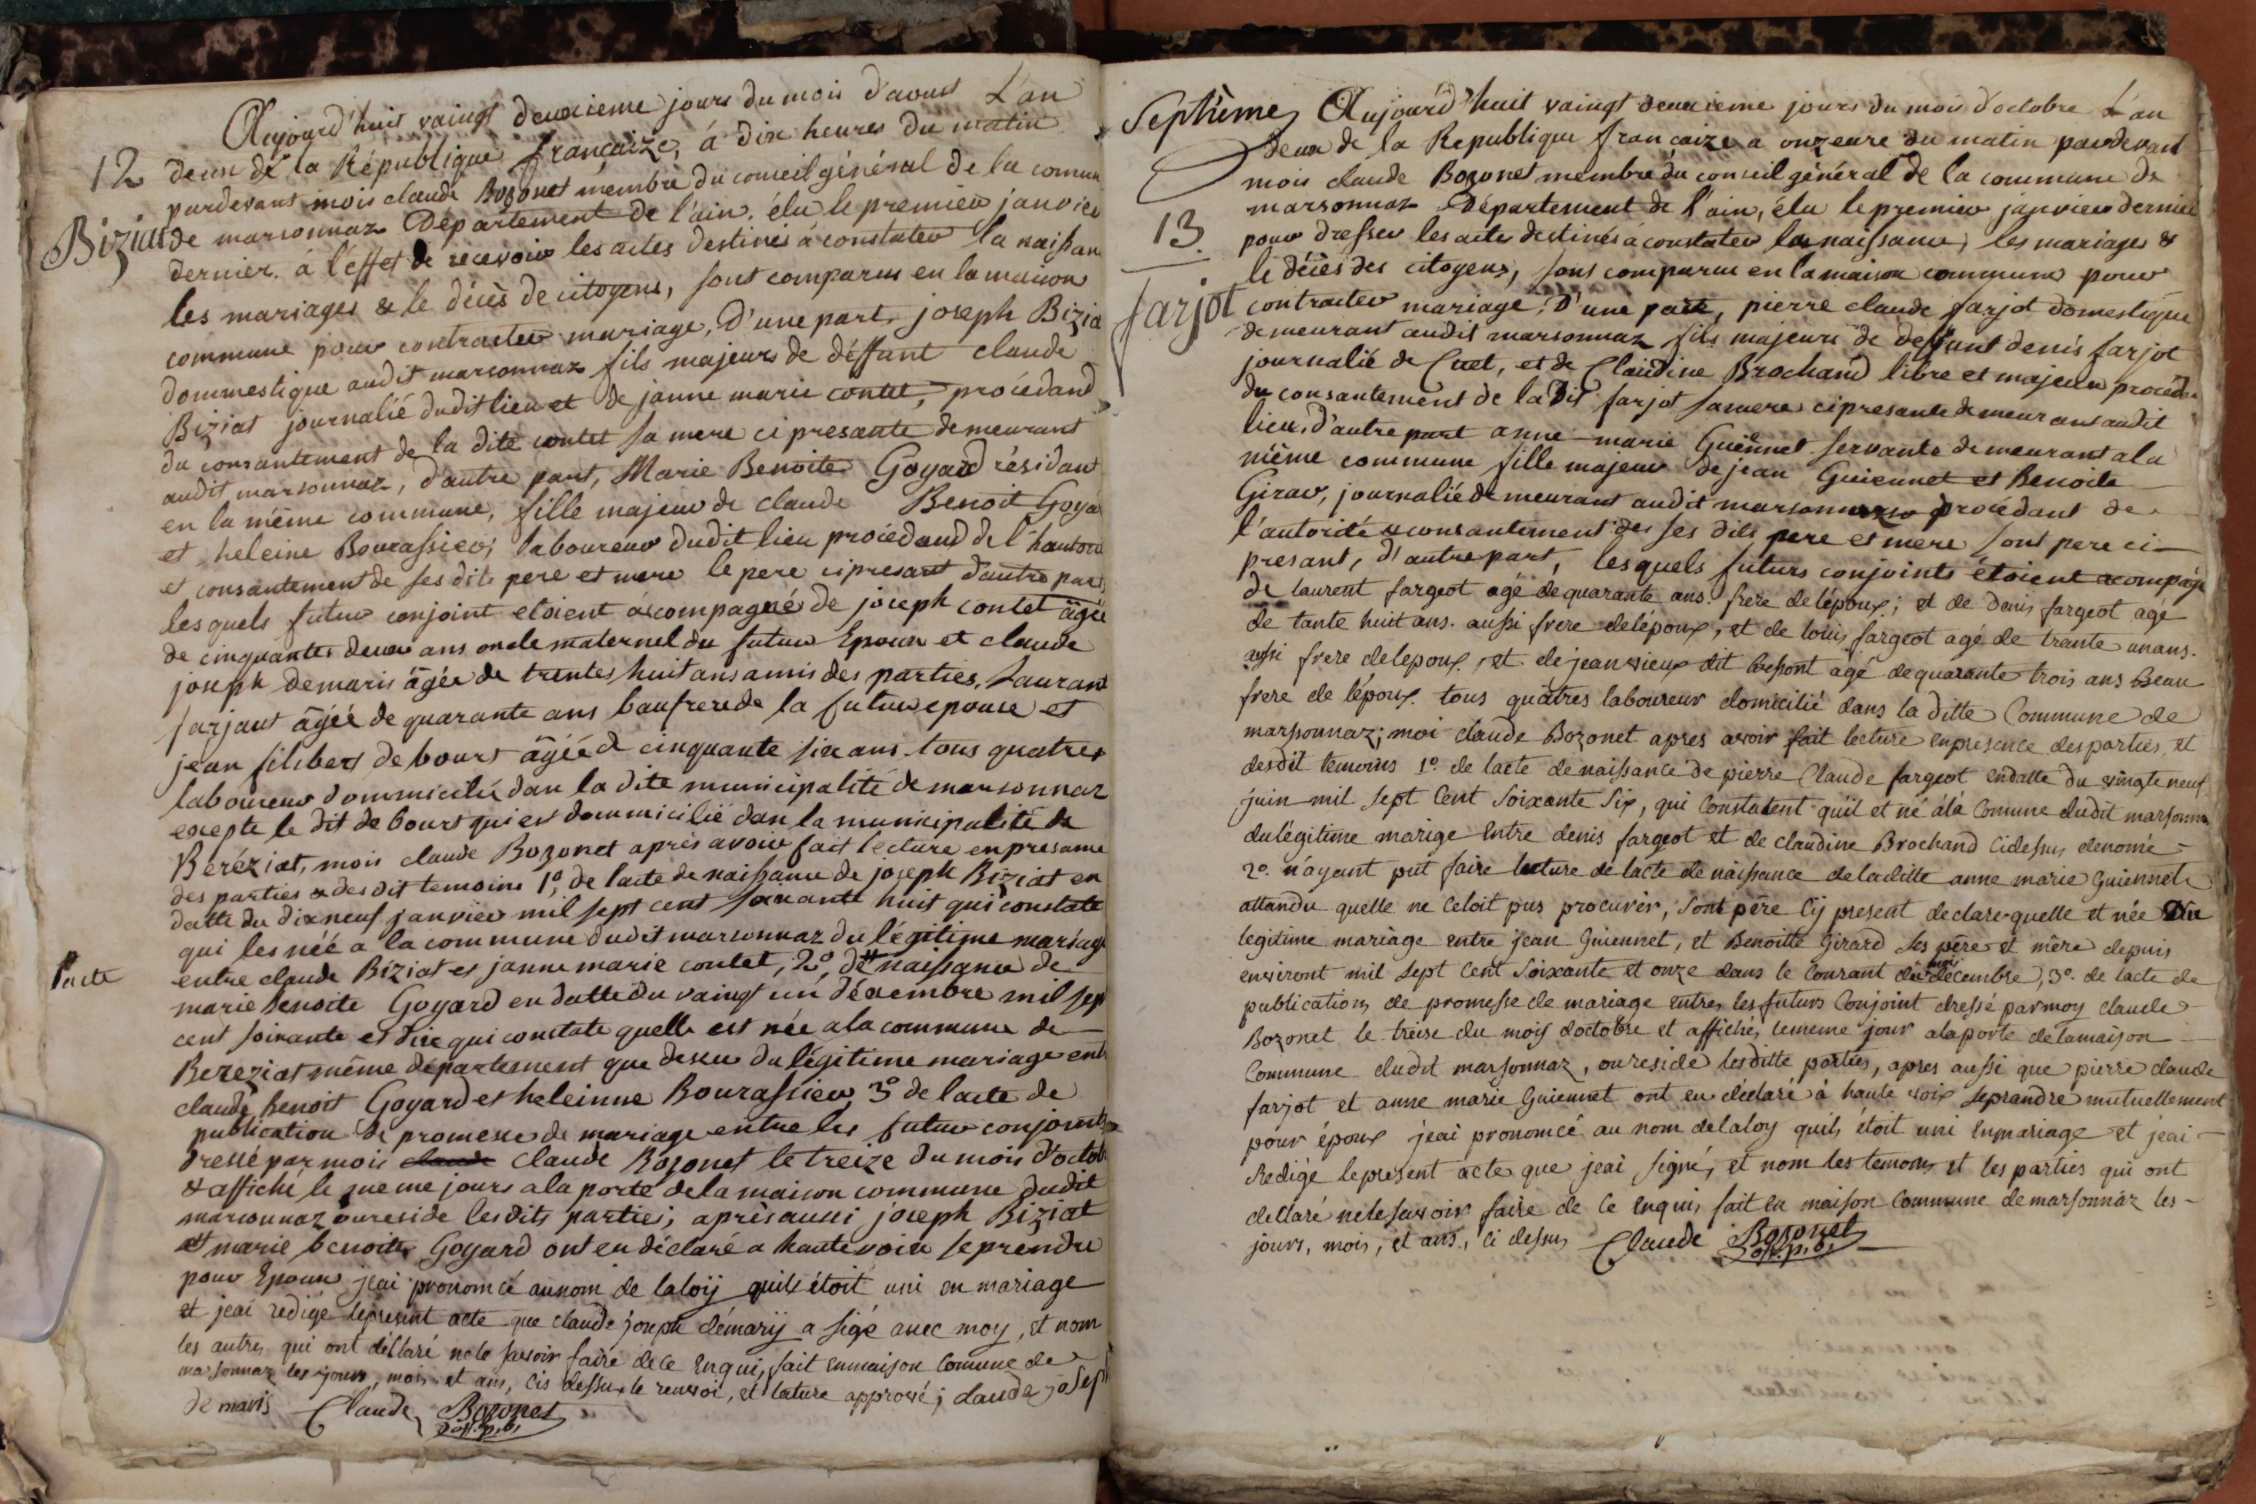 Aujourd'huit vaingt deuxieme jours du mois d'aoust L'an
12
deux de la République françaize, á dix heures du matin
pardevant mois claude Bozonet membre du conseil général de la comun
Biziat
de marsonnaz Département de l'ain. élu le premier janvier
dernier. á l'éffet de recevoir les actes destinés á constater la naissan
les mariages & le décès de citoyens, sont comparus en la maison
commune pour contracter mariage, D'une part, joseph Bizia
dommestique audit marsonnaz fils majeurs de déffunt claude
Biziat journalié dudit lieu et de janne marie contet, procédand
du consantement de la dite contet sa mere ci presante demeurant
audit marsonnaz, d'autre part, Marie Benoite Goyard résidant
en la même commune, fille majeur de claude Benoit Goya
et heleine Bourassier, laboureur dudit lieu procédand de l'hautori
et consantement de ses dits pere et mere le pere cipresant d'autre part
lesquels futur conjoint etoient accompagné de joseph contet âgée
de cinquantes deux ans oncle maternel du futur Epoux et claude
joseph demaris âgée de trentes huit ans amis des parties, Laurant
farjaut âgéé de quarante ans baufrere de la future epouse et
jean filibert de bours âgée de cinquante six ans tous quatres
laboureur dommicilié dan la dite municipalité de marsonnaz
excepte le dit de bours qui est dommicilié dan la municipalité de
Beréziat, mois claude Bozonet après avoir fait lecture en presance
des parties & des dit temoins 1º, de lacte de naissance de joseph Biziat en
datte du dix neuf janvier mil sept cent soixante huit qui constate
qui les néé a la commune dudit marsonnaz du légitime mariage
lacte
entre claude Biziat et janne marie contet, 2º, de # naissance de
marie benoite Goyard en datte du vaingt un décembre mil sep
cent soixante et dixe qui constate quelle est née a la commune de
Bereziat même département que desu du légitime mariage ent
claude Benoit Goyard et heleinne Bourassier, 3º de lacte de
publication de promesse de mariage entre les futur conjoints
dressé par mois claude Claude Bozonet le treize du mois d'octob
& affiché le meme jours a la porte de la maison commune dudit
marsonnaz oureside lesdits parties, après aussi joseph Biziat
et marie benoite Goyard ont eu déclaré a haute voix se prendre
pour Epoux jeai prononcé au nom de laloij quils étoit uni en mariage
et jeai redigé lepresent acte que claude joseph démarij a sigé avec moy, et nom
les autres qui ont déllaré ne le savoir faire de ce enquis, fait enmaison Comune de
marsonnaz les jours, mois et ans, cis dessus le renvoi, et lature apprové; claude joseph
de maris Claude Bozonet
off. p. b.
Septième Aujourd'huit vaingt deuxieme jours du mois d'octobre L'an
deux de la Republique françaize a onzeure du matin pardevant
mois claude Bozonet membre du conseil général de la commune de
marsonnaz Département de l'ain, élu le premier janvier dernier
13.
pour dresser les actes destinés á constater la naissance, les mariages &
le décès des citoyens, sont comparus en la maison commune pour
farjot
contracter mariage, D'une part, pierre claude farjot domestique
demeurant audit marsonnaz fils majeurs de deffunt denis farjot
journalié de Cuet, et de Claudine Brochand libre et majeur procéd
du consantement de la dit farjot sa mere cipresante demeurant audit
lieu, d'autre part anne marie Guiennet servante demeurant a la
même commune fille majeur de jean Guiennet et Benoite
Girar, journalié demeurant audit marsonnaz procédant de
l'autorité & consantement des ses dits pere et mere sont pere ci
presant, d'autre part, lesquels futurs conjoints étoient acompagé
de laurent fargeot agé de quarante ans. frere de lépoux; et de denis fargeot agé
de tante huit ans. aussi frere delépoux, et de louis fargeot agé de trante unans.
aussi frere delepoux, et de jean vieux dit agé de quarante trois ans Beau
frere de lépoux. tous quatres laboureur domicilié dans la ditte Commune de
marsonnaz; moi claude Bozonet apres avoir fait lecture enpresence desparties, et
desdit temoins 1º. de lacte denaissance de pierre Claude fargeot endatte du vingte neuf
juin mil sept Cent Soixante Six, qui Constatent quil et né ála Comune dudit marsonna
dulégitime marige Entre denis fargeot et de claudine Brochand Cidessus denomé
2º. n'ayant put faire lecture de lacte de naissance deladitte anne marie Guiennet
attandu quelle ne celoit pus procurér, sont pére cij present declare quelle et née Du
legitime mariage entre jean Guiennet, et Benoitte Girard ses pére et mére depuis
environt mil sept Cent Soixante et onze dans le Courant du moi décembre, 3º. de lacte de
publication de promesse de mariage entre, les futurs Conjoint dressé parmoy claude
Bozonet le treise du mois doctobre et affiché, lememe jour alaporte de lamaison
Commune dudit marsonnaz, oureside lesditte parties, apres aussi que pierre claude
farjot et anne marie Guiennet ont eu déclaré à haute voix seprandre mutuellement
pour époux jeai prononcé au nom delaloy quils étoit uni Enmariage et jeai
Redigé lepresent acte que jeai signé, et nom les temoins et les parties qui ont
dellaré nelesavoir faire de ce Enquis, fait en maison Commune de marsonnaz les
jours, mois, et ans, ci dessus Claude Bozonet
off. p. b.